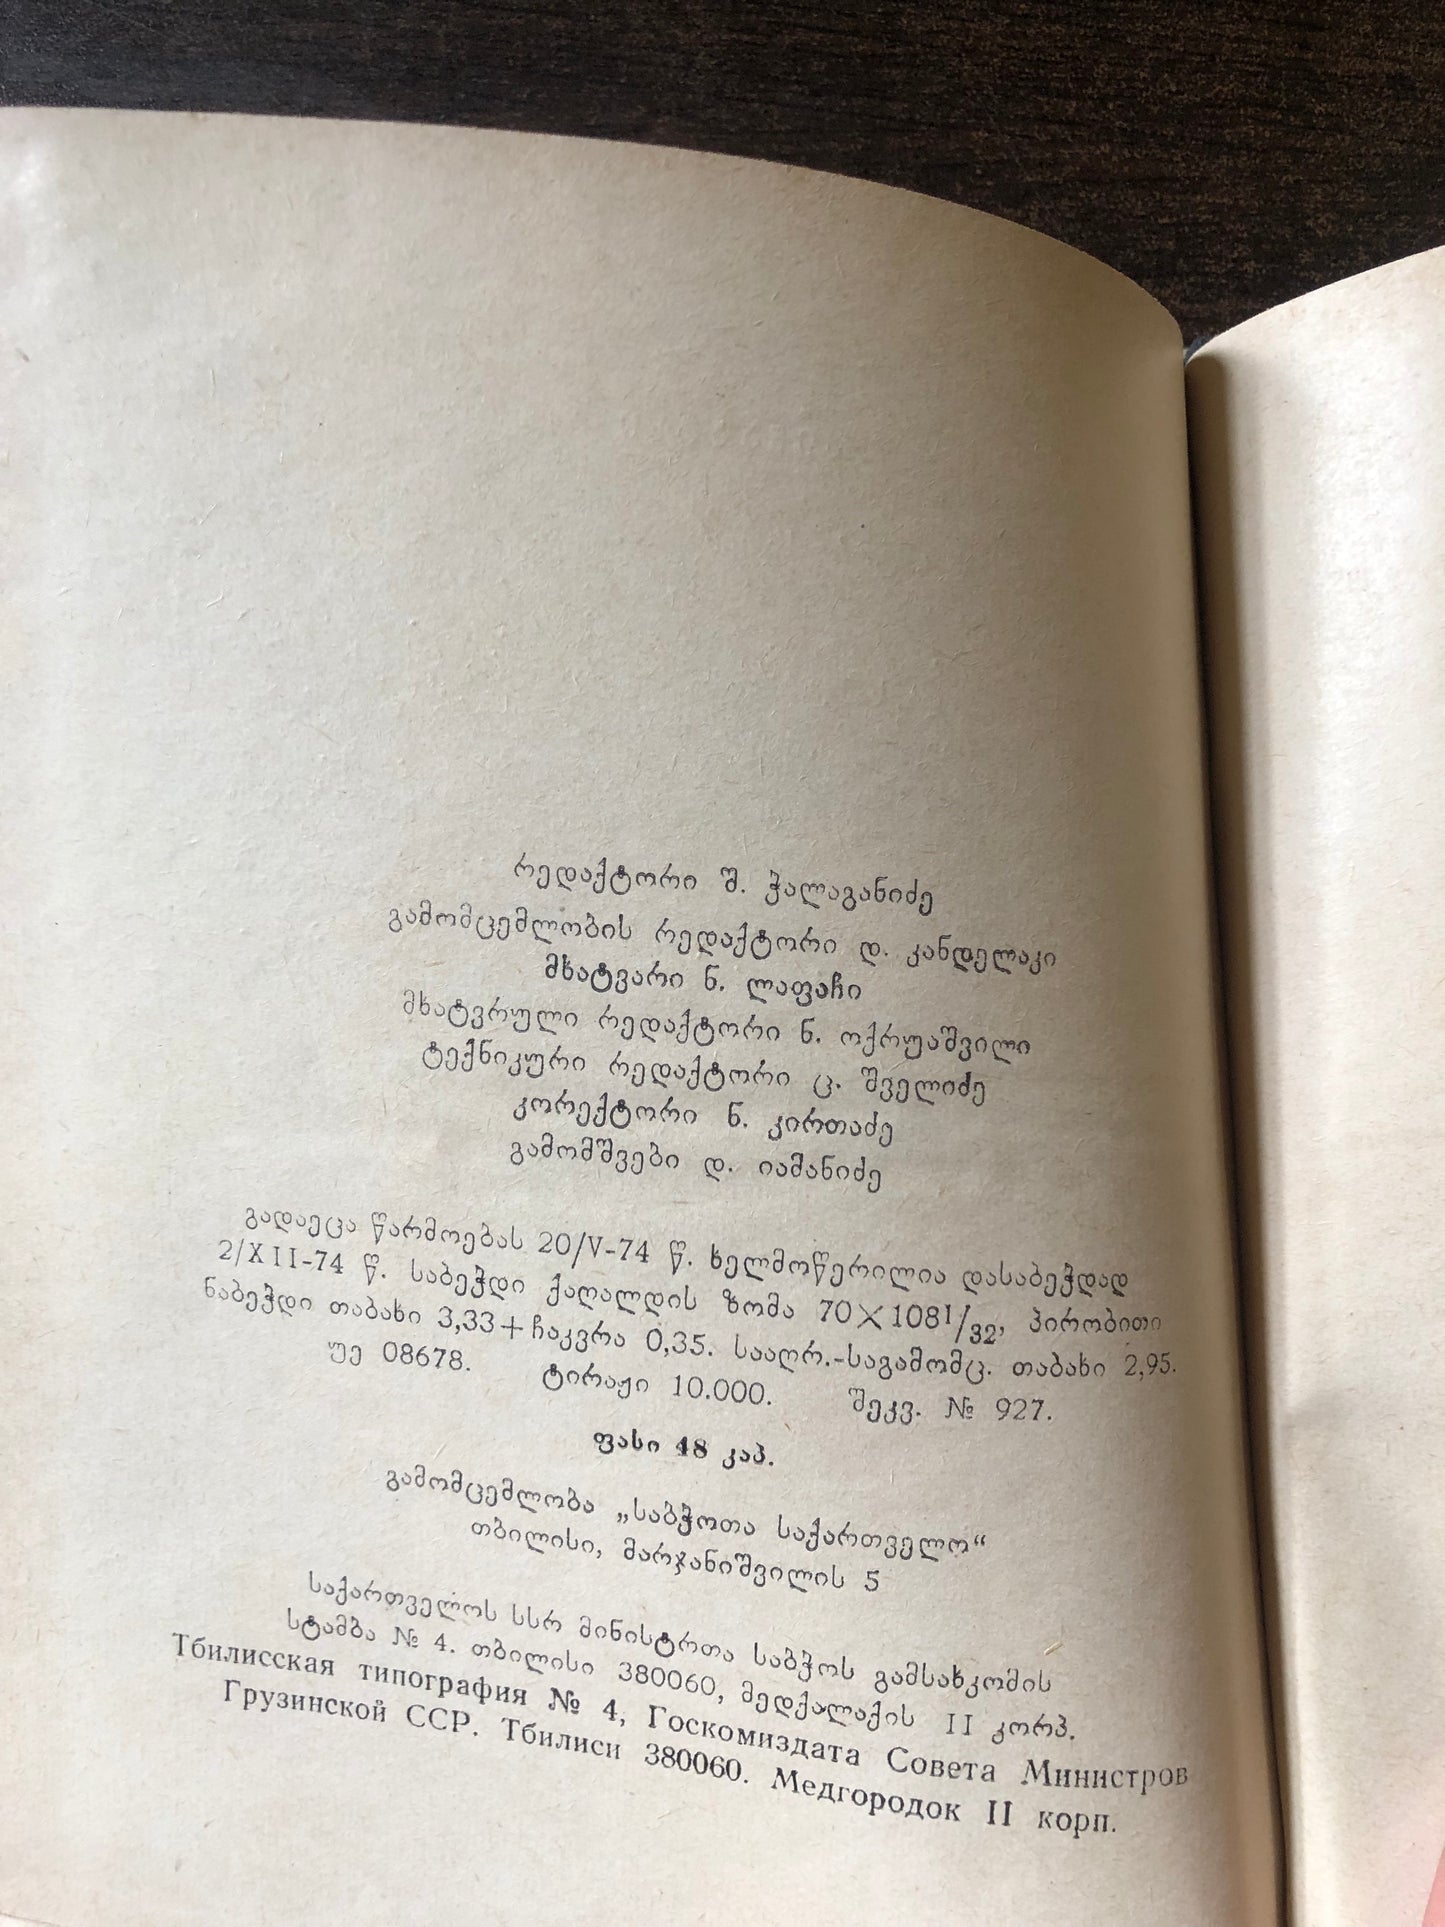 რედაქტორი შ. ჭალაგანიძე
გამომცემლობის რედაქტორი დ. კანდელაკი
მხატვარი ნ. ლაფაჩი
მხატვრული რედაქტორი ნ. ოქრუაშვილი
ტექნიკური რედაქტორი ც. შველიძე
კორექტორი ნ. კირთაძე
გამომშვები დ. იამანიძე
გადაეცა წარმოებას 20/V-74 წ. ხელმოწერილია დასაბეჭდად
2/XII-74 წ. საბეჭდი ქაღალდის ზომა 70×108¹/₃₂, პირობითი
ნაბეჭდი თაბახი 3,33+ჩაკვრა 0,35. სააღრ.-საგამომც. თაბახი 2,95.
უე 08678. ტირაჟი 10.000. შეკვ. № 927.
ფასი 48 კაპ.
გამომცემლობა „საბჭოთა საქართველო“
თბილისი, მარჯანიშვილის 5
საქართველოს სსრ მინისტრთა საბჭოს გამსახკომის
სტამბა № 4. თბილისი 380060, მედქალაქის II კორპ.
Тбилисская типография № 4, Госкомиздата Совета Министров
Грузинской ССР. Тбилиси 380060. Медгородок II корп.